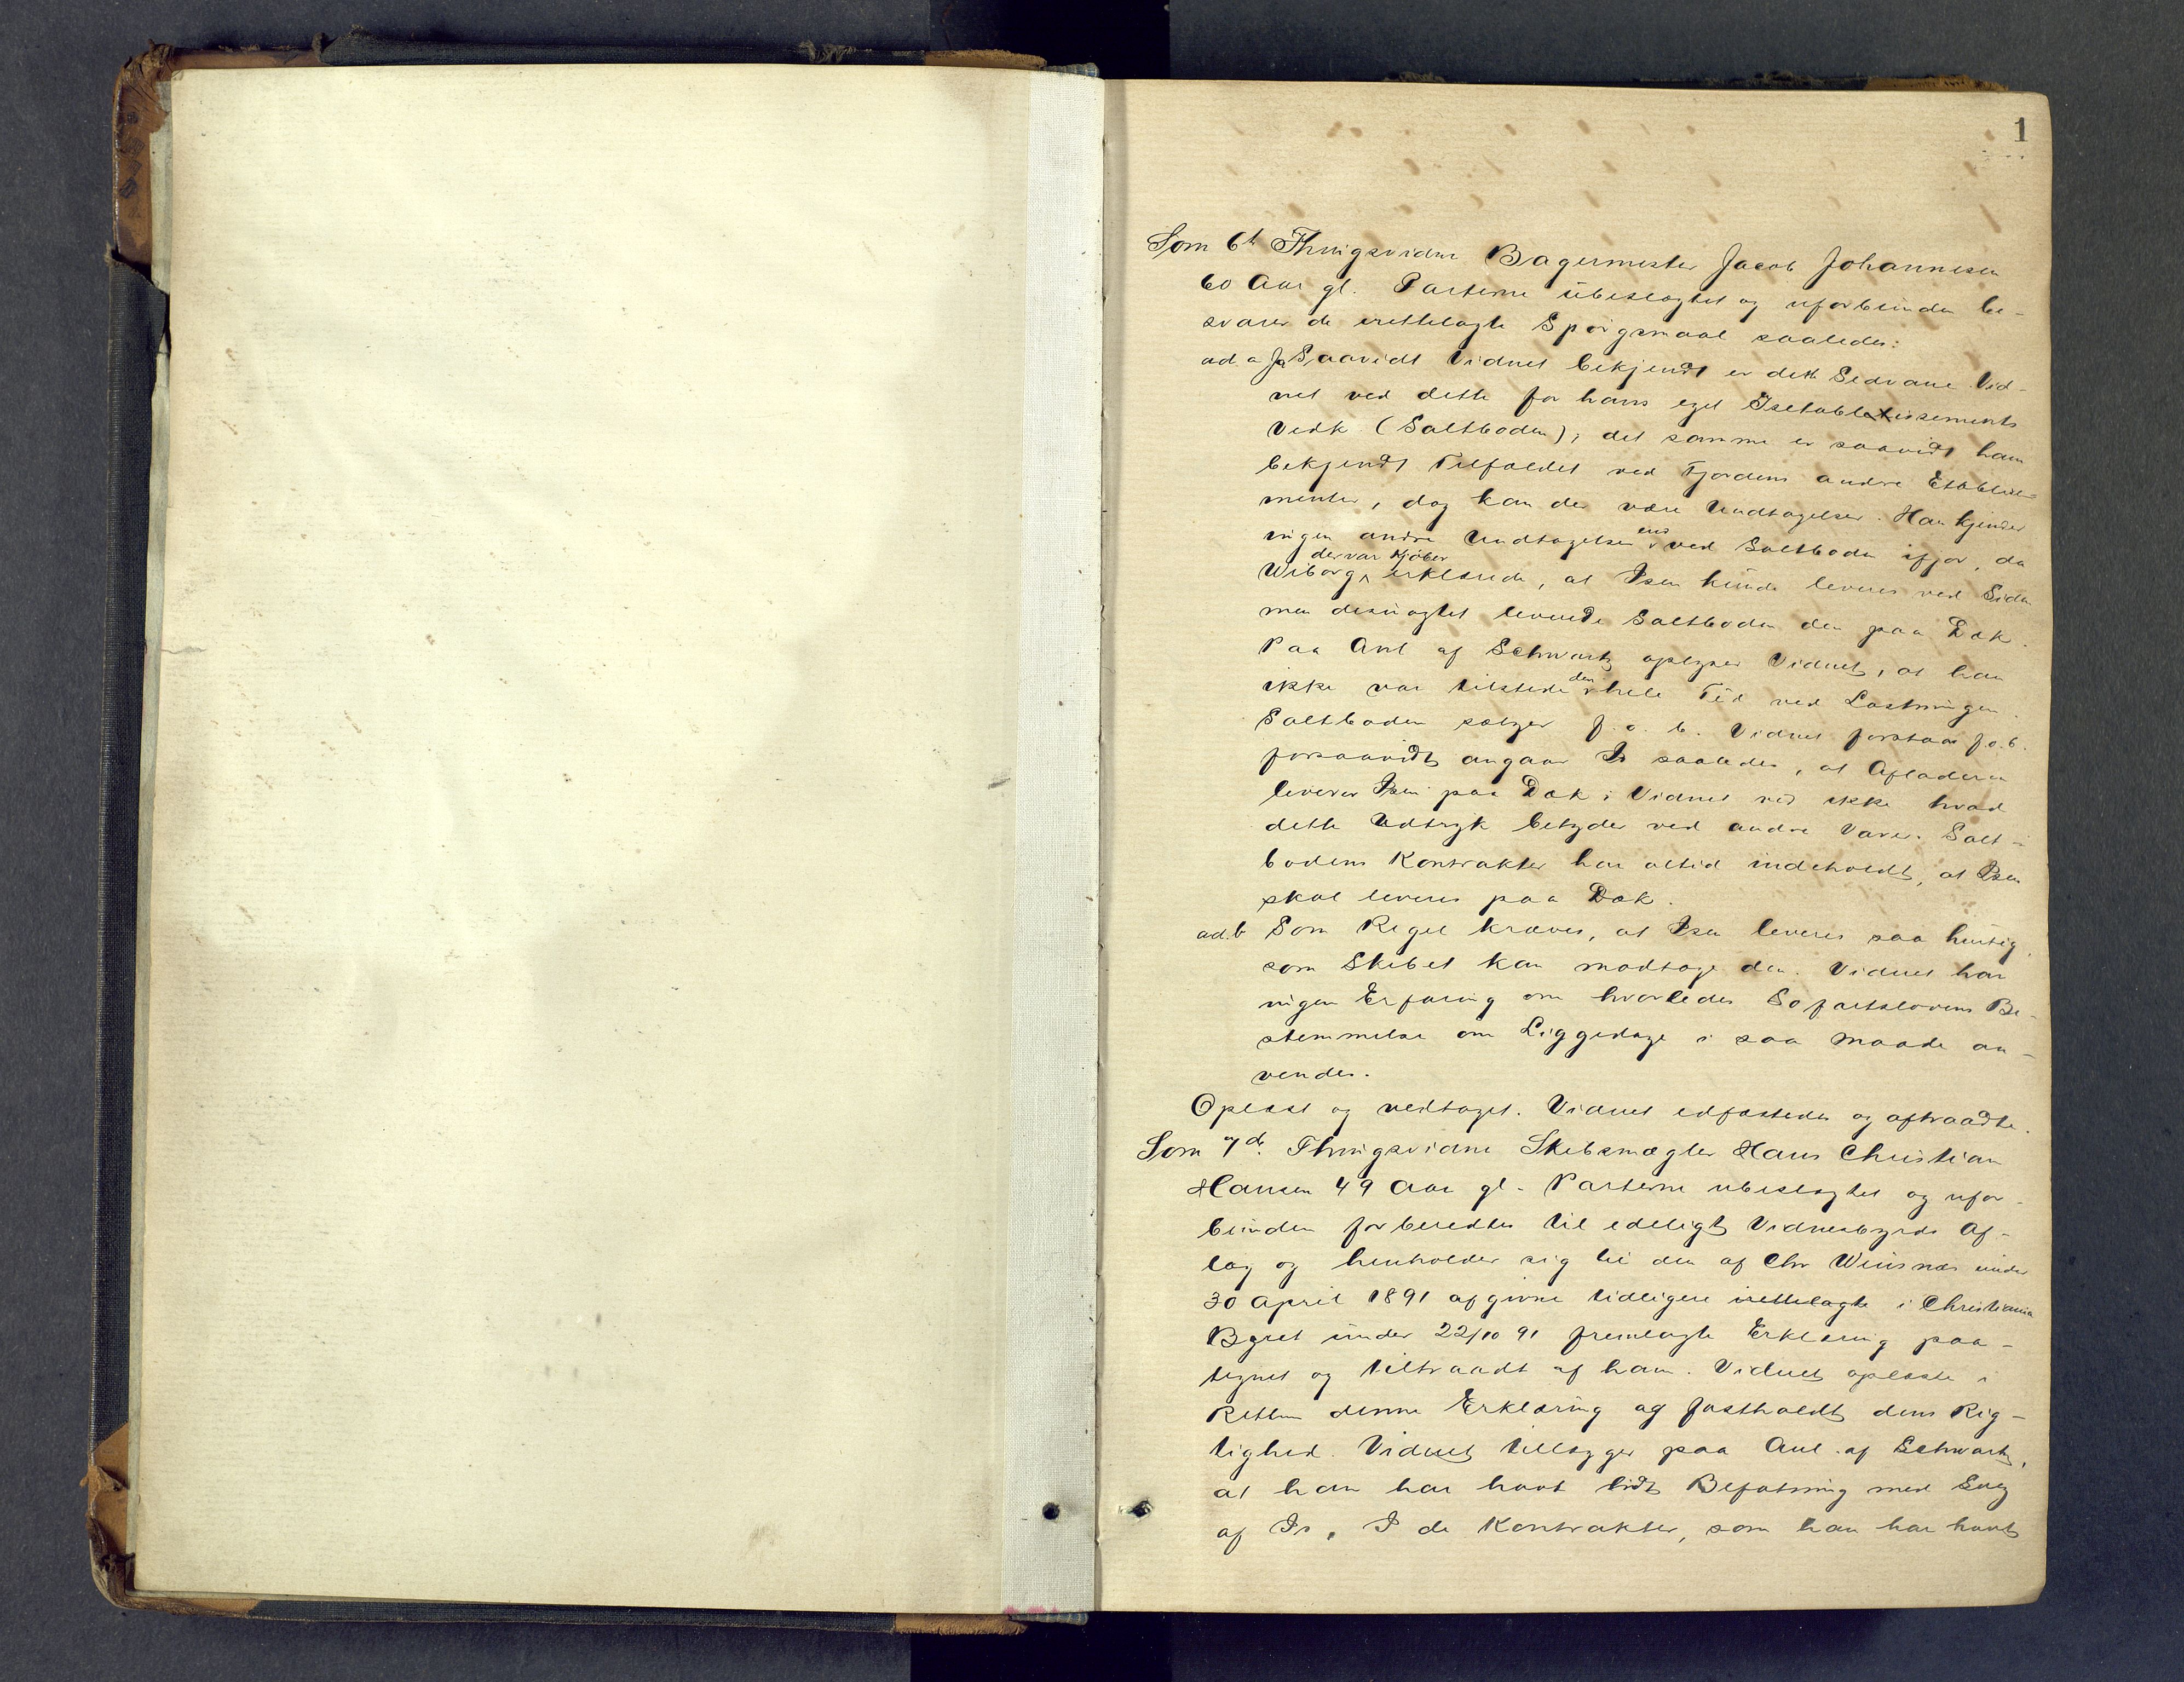 1
Som 6te Thingsvidne Bagermester Jacob Johannesen
60 Aar gl. Parterne übeslægtet og uforbünden be-
svarer de irettelagte Spörgsmaal saaledes:
ad a Ja Saavidt Vidnet bekjendt er dette Sedvane. Vid-
net ved dette for hans eget Isetablissements
Vedk (Saltboden); det samme er saavidt ham
bekjendt Tilfældet ved Fjordens andre Etablisse-
menter, dog kan der være Undtagelser. Han kjender
ingen andre Undtagelse end ved Saltboden ifjor, da
Wiborg, der var Kjöber erklærede, at Isen künde leveres ved Siden
men desüagtet leverede Saltboden den paa Dæk.
Paa Anl af Schwartz oplyser Vidnet, at han
ikke var tilstede den hele Tid ved Lastningen.
Saltboden sælger f. o. b. Vidnet forstaar f.o.b.
forsaavidt angaar Is saaledes, at Afladeren
leverer Isen paa Dæk; Vidnet ved ikke hvad
dette Udtryk betyder ved andre Varer. Salt-
bodens Kontrakter har altid indeholdt, at Isen
skal leveres paa Dæk.
ad. b Som Regel kræves, at Isen leveres saa hürtig
som Skibet kan modtage den. Vidnet har
ingen Erfaring om hvorledes Søfartslovens Be-
stemmelse om Liggedage i saa Maade an-
vendes.
Oplæst og vedtaget. Vidnet edfæstedes og aftraadte.
Som 7de Thingsvidne Skibsmægler Hans Christian
Hansen 49 Aar gl. Parterne ubeslægtet og ufor-
bünden forberedtes til edeligt Vidnesbyrds Af-
læg og henholder sig til den af Chr Wiisnæs ünder
30 April 1891 afgivne tidligere irettelagte i Christiania
Byret ünder 22/10 91 fremlagte Erklæring paa-
tegnet og tiltraadt af ham. Vidnet oplæste i
Retten denne Erklæring og fastholdt dens Rig-
tighed. Vidnet tillægger paa Anl. af Schwartz,
at han har havt lidt Befatning med Salg
af Is. I de Kontrakter, som han har havt